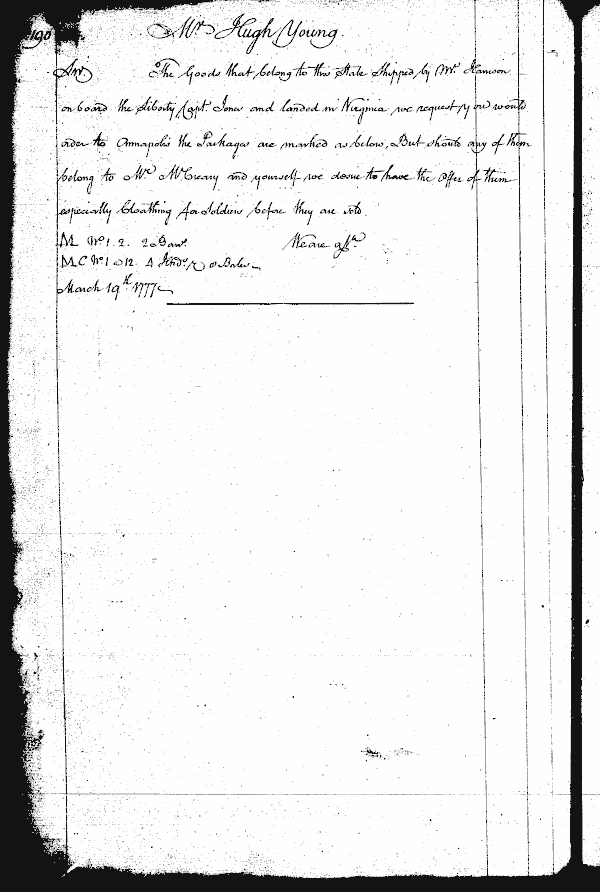 190
Mr. Hugh Young.
Sir The Goods that belong to this State Shipped by Mr. Harrison
on board the Liberty Capt. Jones and landed in Virginia, we request you would
order to Annapolis the Packages are marked as below, But should any of them
belong to Mr. McCreary and yourself we desire to have the Offer of them
especially Cloathing for Soldiers before they are sold.
M No. 1. 2. 2 We are &c.
MC No. 1 @ 12. 4 Bales
March 19th 1777